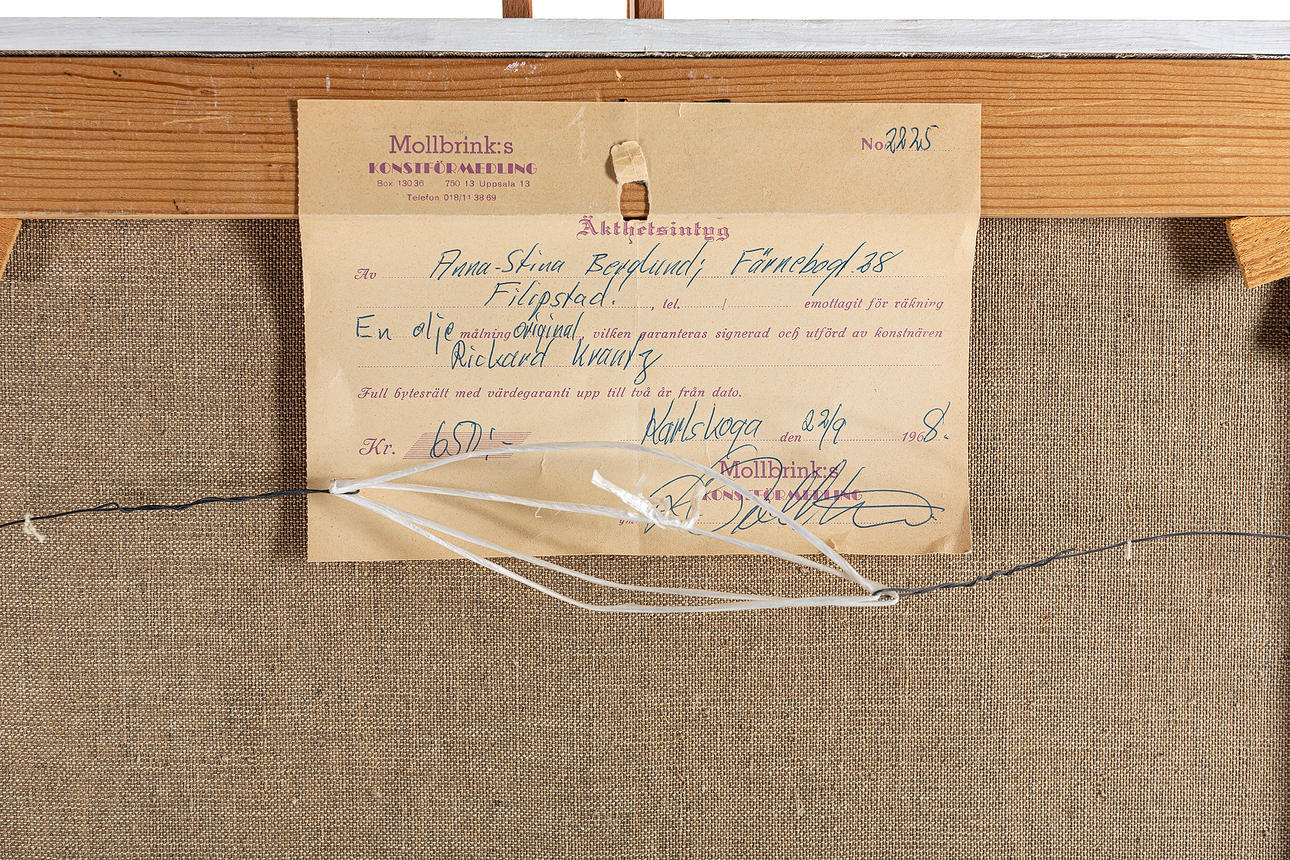 Mollbrink:s
KONSTFÖRMEDLING
Box 13036 750 13 Uppsala 13
Telefon 018/11 38 69
No 2225
Äkthetsintyg
Av Anna-Stina Berglund; Färnebogt. 28
Filipstad. , tel. / emottagit för räkning
En olje målning original, vilken garanteras signerad och utförd av konstnären
Rickard Krantz
Full bytesrätt med värdegaranti upp till två år från dato.
Kr. 650;-
Karlskoga den 22/9 1968.
Mollbrink:s
KONSTFÖRMEDLING